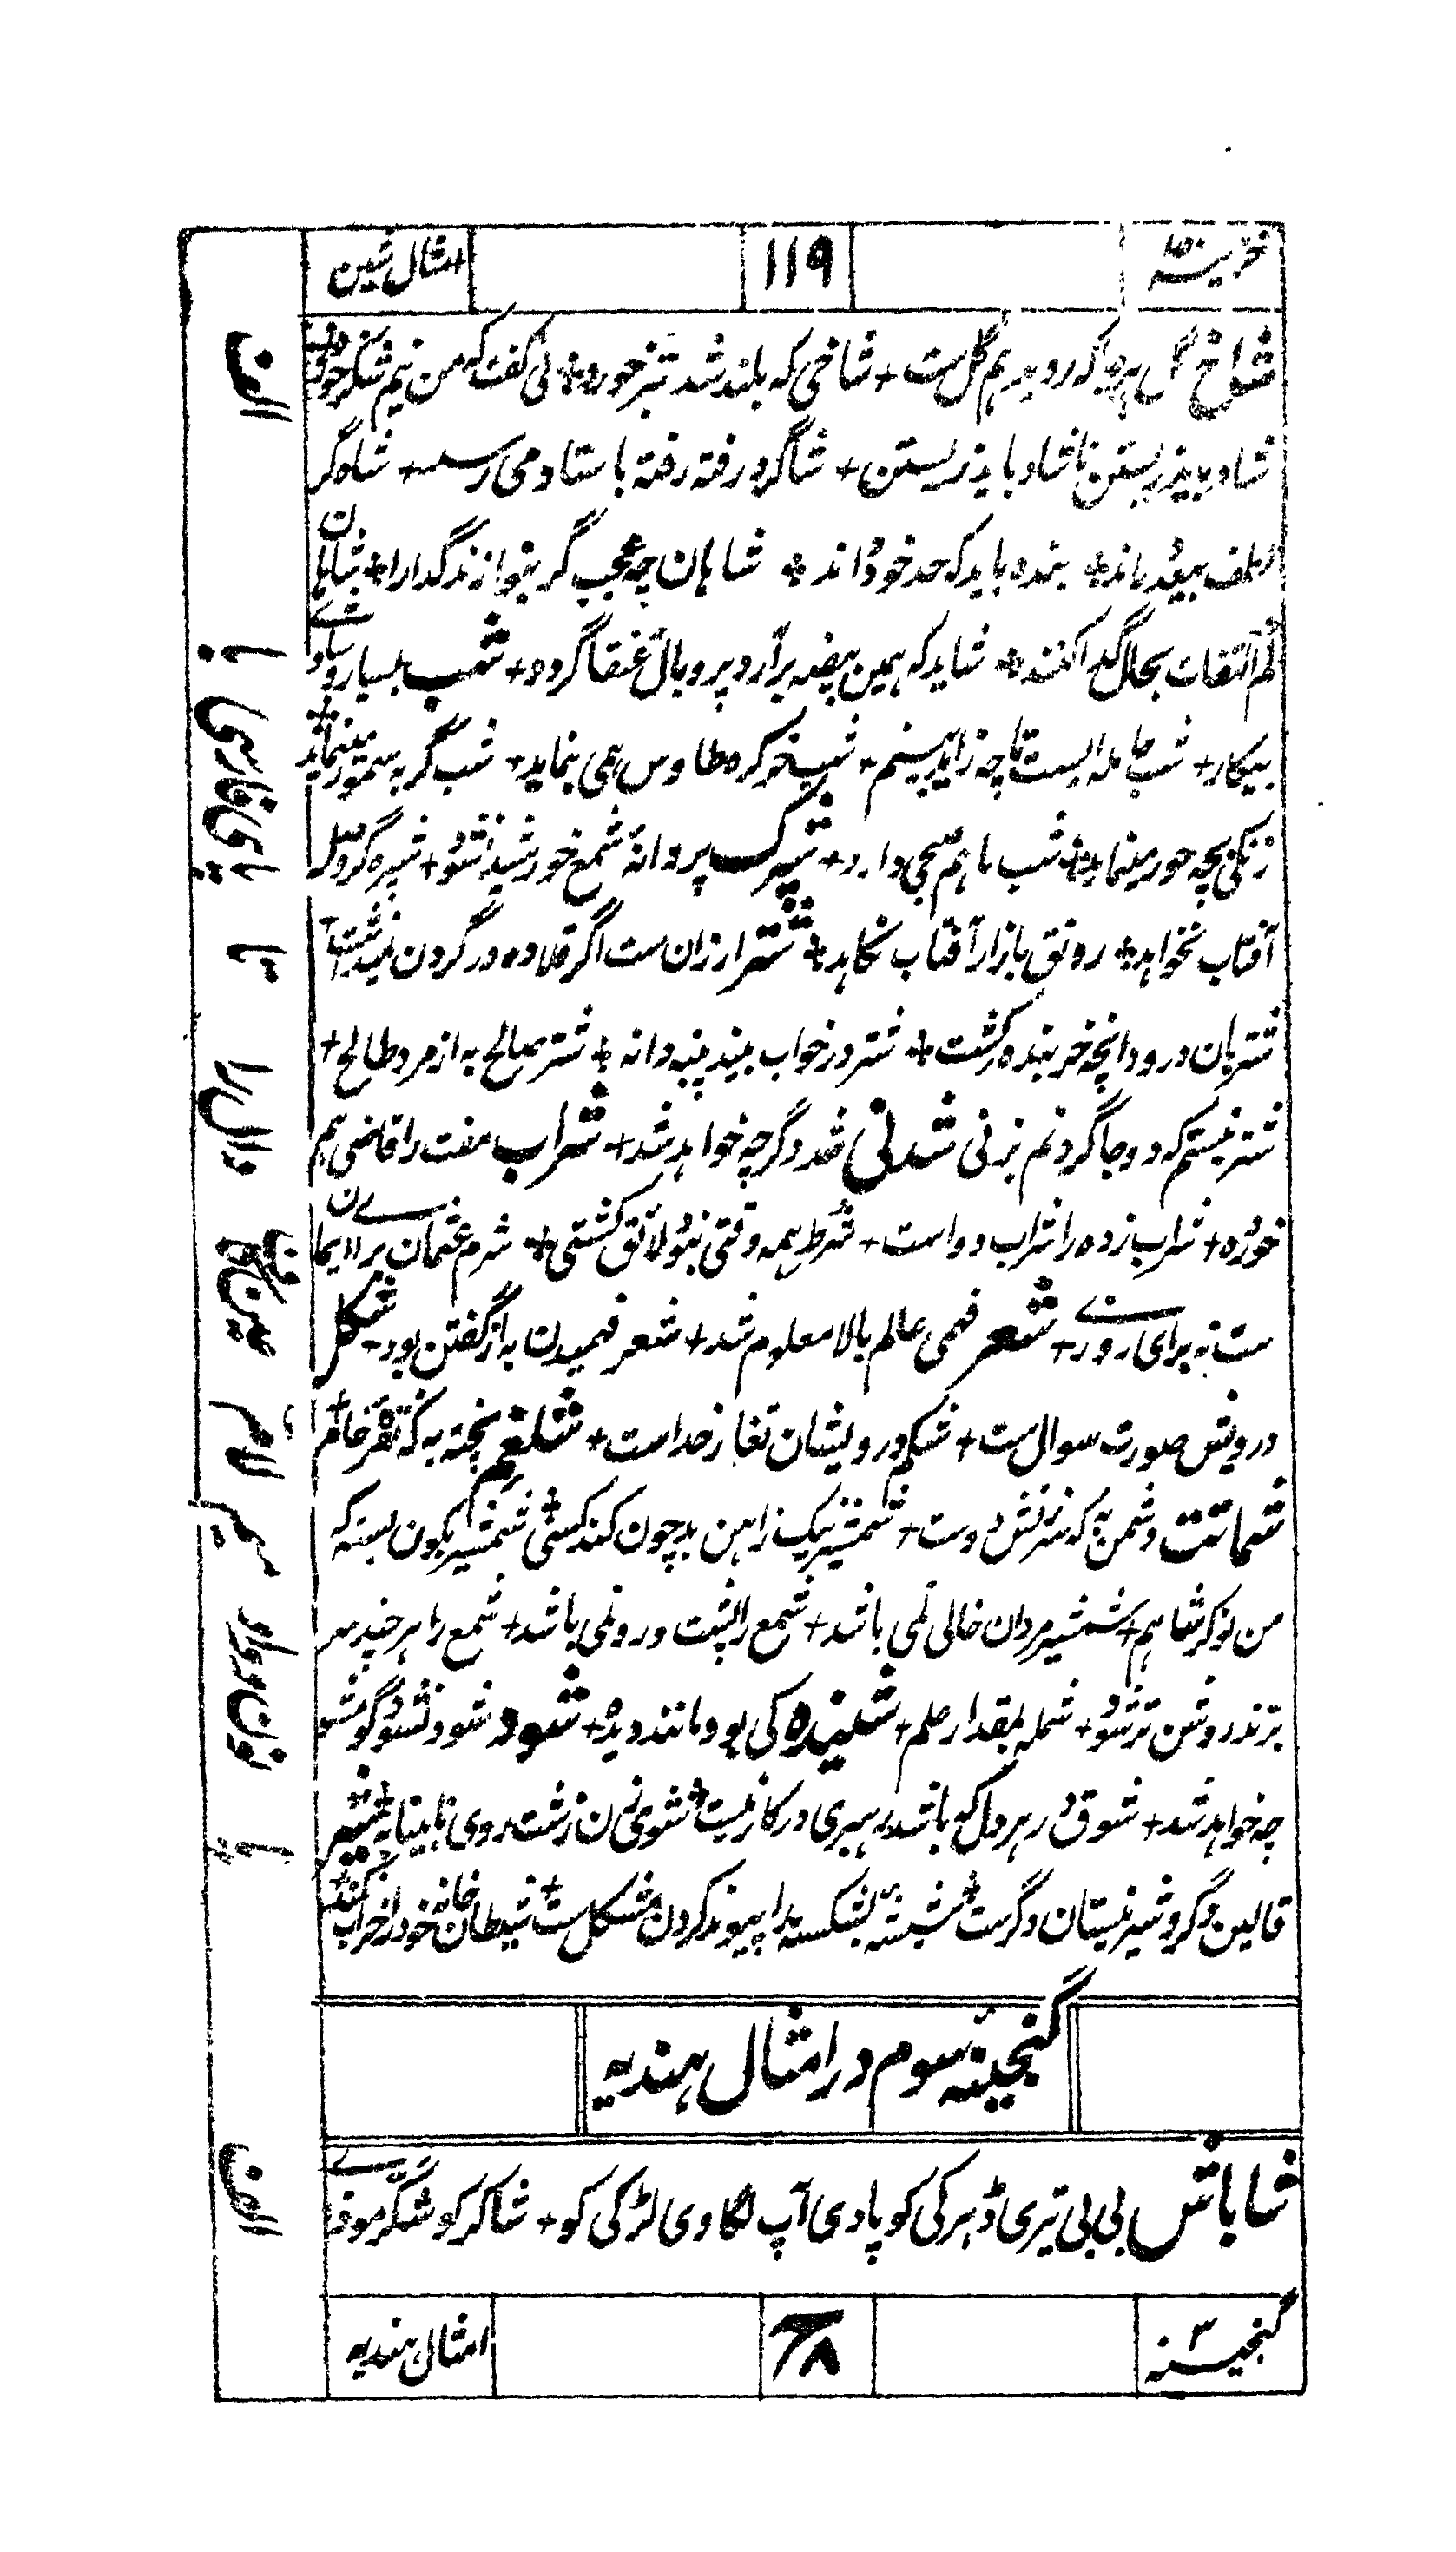 خزینه ۱۵ ۱۱۹ امثال شین
شاخ گل هر جا که روید هم گل ست + شاخی که بلند شد تبر خورد + نی گفت که من نیم شکر خورد
شاد باید زیستن ناشاد باید زیستن + شاگرد رفته رفته باستاد می رسد + شاه گر
لطف بیعدد راند + بنده باید که حد خود داند + شاهان چه عجب گر بنوازند گدا را + شاهان
کم التفات بحال گدا کنند + شاید که همین بیضه برآرد پر و بال عنقا گردد + شب بسیار و
بیکار + شب حامله ایست تا چه زاید بینم + شب خرکره طاوس می نماید + شب گربه سمور مینماید +
زنگی بچه حور مینماید + شب ما هم صبحی دارد + شپرک پروانهٔ شمع خورشید نشود + شپره گر وصل
آفتاب نخواهد + رونق بازار آفتاب نکاهد + شتر ارزان ست اگر قلاده در گردن نمیداشت +
شتربان درود آنچه خربنده کشت + شتر در خواب بیند پنبه دانه + شتر صالح به از مرد طالح +
شتر نیستم که دو جا گردنم بزنی شدنی شد دگر چه خواهد شد + شراب مفت را قاضی هم
خورده + شراب زده را شراب دواست + شرط همه وقتی نبود لائق کشتی + شرم عثمان برای ایمان
ست نه برای روزے + شعر فهمی عالم بالا معلوم شد + شعر فهمیدن به از گفتن بود + شکل
درویش صورت سوال ست + شکم درویشان تغار خداست + شلغم پخته به که نقرهٔ خام +
شماتت دشمن به که سرزنش دوست + شمشیر نیک ز آهن بد چون کند کسی + شمشیر بکون بسته که
من نوکر شاهم + شمشیر مردان خالی نمی باشد + شمع را پشت و رو نمی باشد + شمع را هر چند سر
بزند روشن تر شود + شمله بمقدار علم + شنیده کی بود مانند دیده + شود شود نشود گو مشو
چه خواهد شد + شوق در هر دل که باشد رهبری در کار نیست + شوی زن زشت روی نابینا به + شیر
قالین دگر و شیر نیستان دگرست + شیشهٔ بشکسته را پیوند کردن مشکل ست + شیطان خانه خود را خراب نکند +
گنجینهٔ سوم در امثال هندیه
شاباش بی بی تیری دهرکی کو پادی آپ لگاوی لڑکی کو + شاکر کو شکر موذی
گنجینه ۳ امثال هندیه
الف
با
بای فارسی
تا
دال را
عین
لام
میم
نون واو
یا
الف